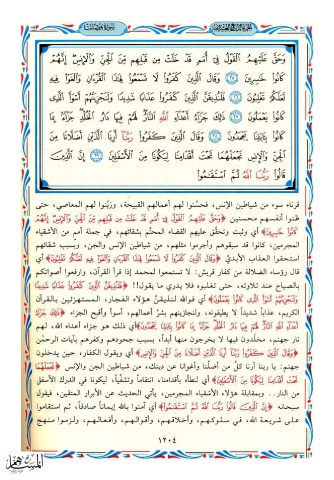 وَحَقَّ عَلَيْهِمُ الْقَوْلُ فِي أُمَمٍ قَدْ خَلَتْ مِن قَبْلِهِم مِّنَ الْجِنِّ وَالْإِنسِ إِنَّهُمْ
كَانُوا خَاسِرِينَ ﴿٢٥﴾ وَقَالَ الَّذِينَ كَفَرُوا لَا تَسْمَعُوا لِهَذَا الْقُرْءَانِ وَالْغَوْا فِيهِ
لَعَلَّكُمْ تَغْلِبُونَ ﴿٢٦﴾ فَلَنُذِيقَنَّ الَّذِينَ كَفَرُوا عَذَابًا شَدِيدًا وَلَنَجْزِيَنَّهُمْ أَسْوَأَ الَّذِي
كَانُوا يَعْمَلُونَ ﴿٢٧﴾ ذَلِكَ جَزَاءُ أَعْدَاءِ اللَّهِ النَّارُ لَهُمْ فِيهَا دَارُ الْخُلْدِ جَزَاءً بِمَا
كَانُوا بِآيَاتِنَا يَجْحَدُونَ ﴿٢٨﴾ وَقَالَ الَّذِينَ كَفَرُوا رَبَّنَا أَرِنَا الَّذَيْنِ أَضَلَّانَا مِنَ
الْجِنِّ وَالْإِنسِ نَجْعَلْهُمَا تَحْتَ أَقْدَامِنَا لِيَكُونَا مِنَ الْأَسْفَلِينَ ﴿٢٩﴾ إِنَّ الَّذِينَ
قَالُوا رَبُّنَا اللَّهُ ثُمَّ اسْتَقَامُوا
قرناء سوء من شياطين الإنس، فحسَّنوا لهم أعمالهم القبيحة، وزيَّنوا لهم المعاصي، حتى
ظنوا أنفسهم محسنين ﴿وَحَقَّ عَلَيْهِمُ الْقَوْلُ فِي أُمَمٍ قَدْ خَلَتْ مِن قَبْلِهِم مِّنَ الْجِنِّ وَالْإِنسِ إِنَّهُمْ
كَانُوا خَاسِرِينَ﴾ أي وثبت وتحقَّق عليهم القضاء المحتَّم بشقائهم، في جملة أمم من الأشقياء
المجرمين، كانوا قد سبقوهم وأجرموا مثلهم، من شياطين الإنس والجن، وبسبب شقائهم
استحقوا العذاب الأبدي ﴿وَقَالَ الَّذِينَ كَفَرُوا لَا تَسْمَعُوا لِهَذَا الْقُرْءَانِ وَالْغَوْا فِيهِ لَعَلَّكُمْ تَغْلِبُونَ﴾ أي
قال رؤساء الضلالة من كفار قريش: لا تستمعوا لمحمد إذا قرأ القرآن، وارفعوا أصواتكم
بالصياح عند تلاوته، حتى تغلبوه فلا يدري ما يقول!! ﴿فَلَنُذِيقَنَّ الَّذِينَ كَفَرُوا عَذَابًا شَدِيدًا
وَلَنَجْزِيَنَّهُمْ أَسْوَأَ الَّذِي كَانُوا يَعْمَلُونَ﴾ أي فوالله لنذيقنَّ هؤلاء الفجار، المستهزئين بالقرآن
الكريم، عذاباً شديداً لا يطيقونه، ولنجازينهم بشرِّ أعمالهم، أسوأ وأقبح الجزاء ﴿ذَلِكَ جَزَاءُ
أَعْدَاءِ اللَّهِ النَّارُ لَهُمْ فِيهَا دَارُ الْخُلْدِ جَزَاءً بِمَا كَانُوا بِآيَاتِنَا يَجْحَدُونَ﴾ أي ذلك هو جزاء أعداء الله، لهم
نار جهنم، مخلَّدون فيها لا يخرجون منها أبداً، بسبب جحودهم وكفرهم بآيات الرحمن
﴿وَقَالَ الَّذِينَ كَفَرُوا رَبَّنَا أَرِنَا الَّذَيْنِ أَضَلَّانَا مِنَ الْجِنِّ وَالْإِنسِ﴾ أي ويقول الكفار، حين يدخلون
جهنم: يا ربنا أرنا كلَّ من أضلَّنا وأغوانا عن دينك، من شياطين الجن والإنس ﴿نَجْعَلْهُمَا
تَحْتَ أَقْدَامِنَا لِيَكُونَا مِنَ الْأَسْفَلِينَ﴾ أي لنطأه بأقدامنا، انتقاماً وتشفِّياً، ليكونا في الدرك الأسفل
من النار.. وبمقابلة هؤلاء الأشقياء المجرمين، يأتي الحديث عن الأبرار المتقين، فيقول
سبحانه ﴿إِنَّ الَّذِينَ قَالُوا رَبُّنَا اللَّهُ ثُمَّ اسْتَقَامُوا﴾ أي آمنوا بالله إيماناً صادقاً، ثم استقاموا
على شريعة الله، في سلوكهم، وأخلاقهم، وأقوالهم، وأفعالهم، ولزموا منهج
١٢٠٤